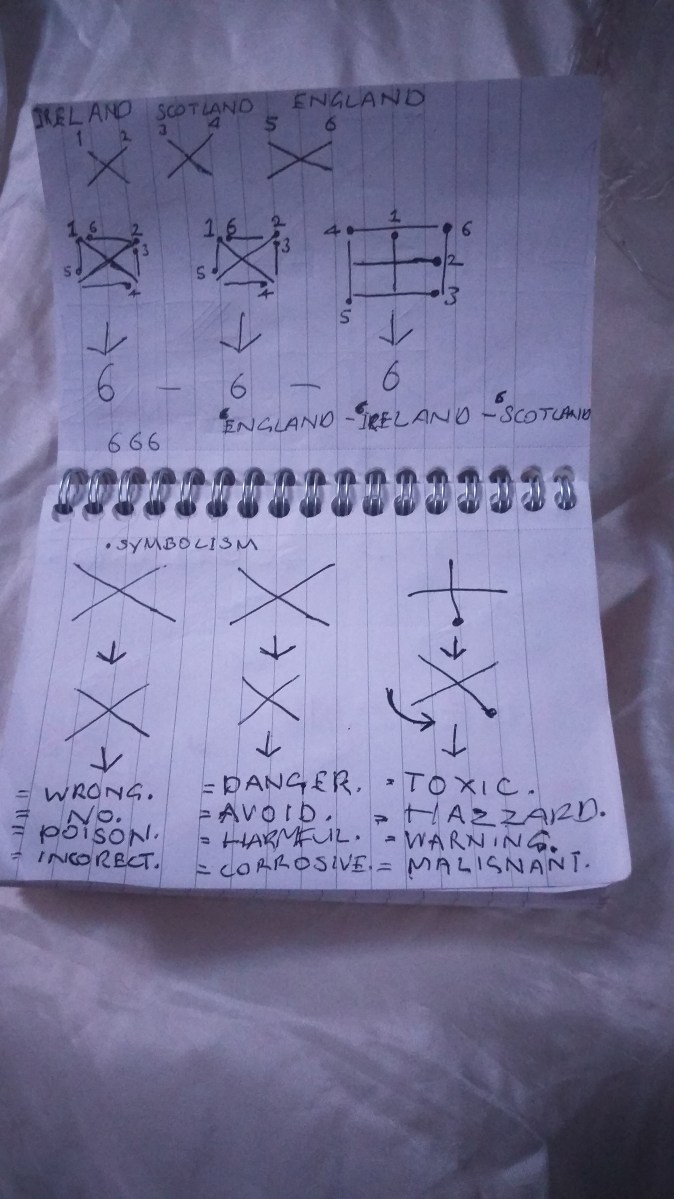 IRELAND SCOTLAND ENGLAND
1 2 3 4 5 6
1 6 2 3 5 4
1 6 2 3 5 4
4 1 6 2 3 5
6 - 6 - 6
6ENGLAND - 6IRELAND - 6SCOTLAND
666
.SYMBOLISM
= WRONG. = DANGER. = TOXIC.
= NO. = AVOID. = HAZZARD.
= POISON. = HARMFUL. = WARNING.
= INCORECT. = CORROSIVE. = MALIGNANT.